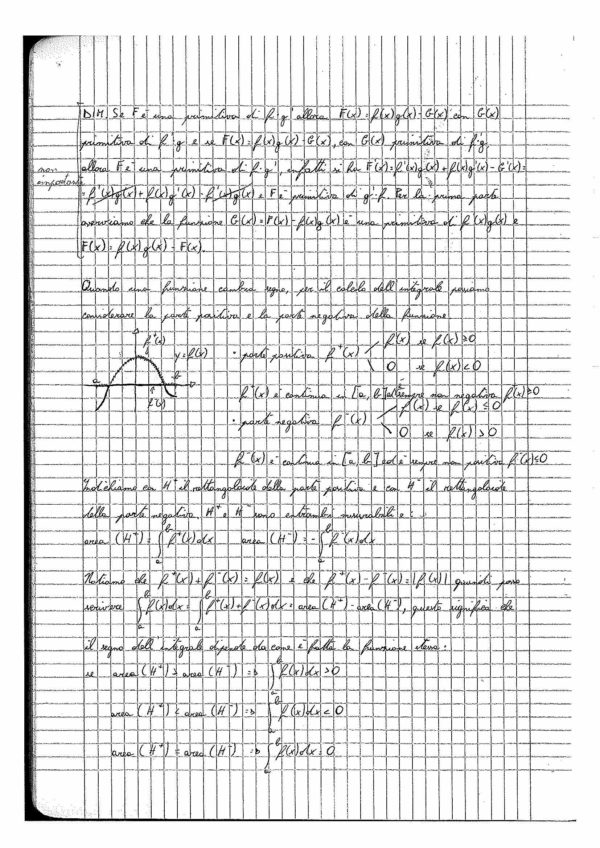 DIM. Se F è una primitiva di f·g' allora F(x)=f(x)g(x)-G(x) con G(x)
primitiva di f'g e se F(x)=f(x)g(x)-G(x), con G(x) primitiva di f'g,
non importante
allora F è una primitiva di f·g', infatti si ha F'(x)=f'(x)g(x)+f(x)g'(x)-G'(x)=
=f'(x)g(x)+f(x)g'(x)-f'(x)g(x) e F è primitiva di g'·f. Per la prima parte
osserviamo che la funzione G(x)=f(x)g(x) è una primitiva di f'(x)g(x) e
F(x)=f(x)g(x)-F(x).
Quando una funzione cambia segno, per il calcolo dell'integrale possiamo
considerare la parte positiva e la parte negativa della funzione
f⁺(x)
y=f(x)
a
b
f⁻(x)
• parte positiva f⁺(x)
f(x) se f(x)≥0
0 se f(x)<0
f⁺(x) è continua in [a,b] ed è sempre non negativa f⁺(x)≥0
• parte negativa f⁻(x)
f(x) se f(x)≤0
0 se f(x)>0
f⁻(x) è continua in [a,b] ed è sempre non positiva f⁻(x)≤0
Indichiamo con H⁺ il rettangoloide della parte positiva e con H⁻ il rettangoloide
della parte negativa. H⁺ e H⁻ sono entrambi misurabili e:
area (H⁺)=∫ₐᵇ f⁺(x)dx area (H⁻)=-∫ₐᵇ f⁻(x)dx
Notiamo che f⁺(x)+f⁻(x)=f(x) e che f⁺(x)-f⁻(x)=|f(x)| quindi posso
scrivere ∫ₐᵇ f(x)dx=∫ₐᵇ f⁺(x)+f⁻(x)dx=area(H⁺)-area(H⁻), questo significa che
il segno dell'integrale dipende da come è fatta la funzione stessa:
se area (H⁺)>area (H⁻) => ∫ₐᵇ f(x)dx>0
area (H⁺)<area (H⁻) => ∫ₐᵇ f(x)dx<0
area (H⁺)=area (H⁻) => ∫ₐᵇ f(x)dx=0